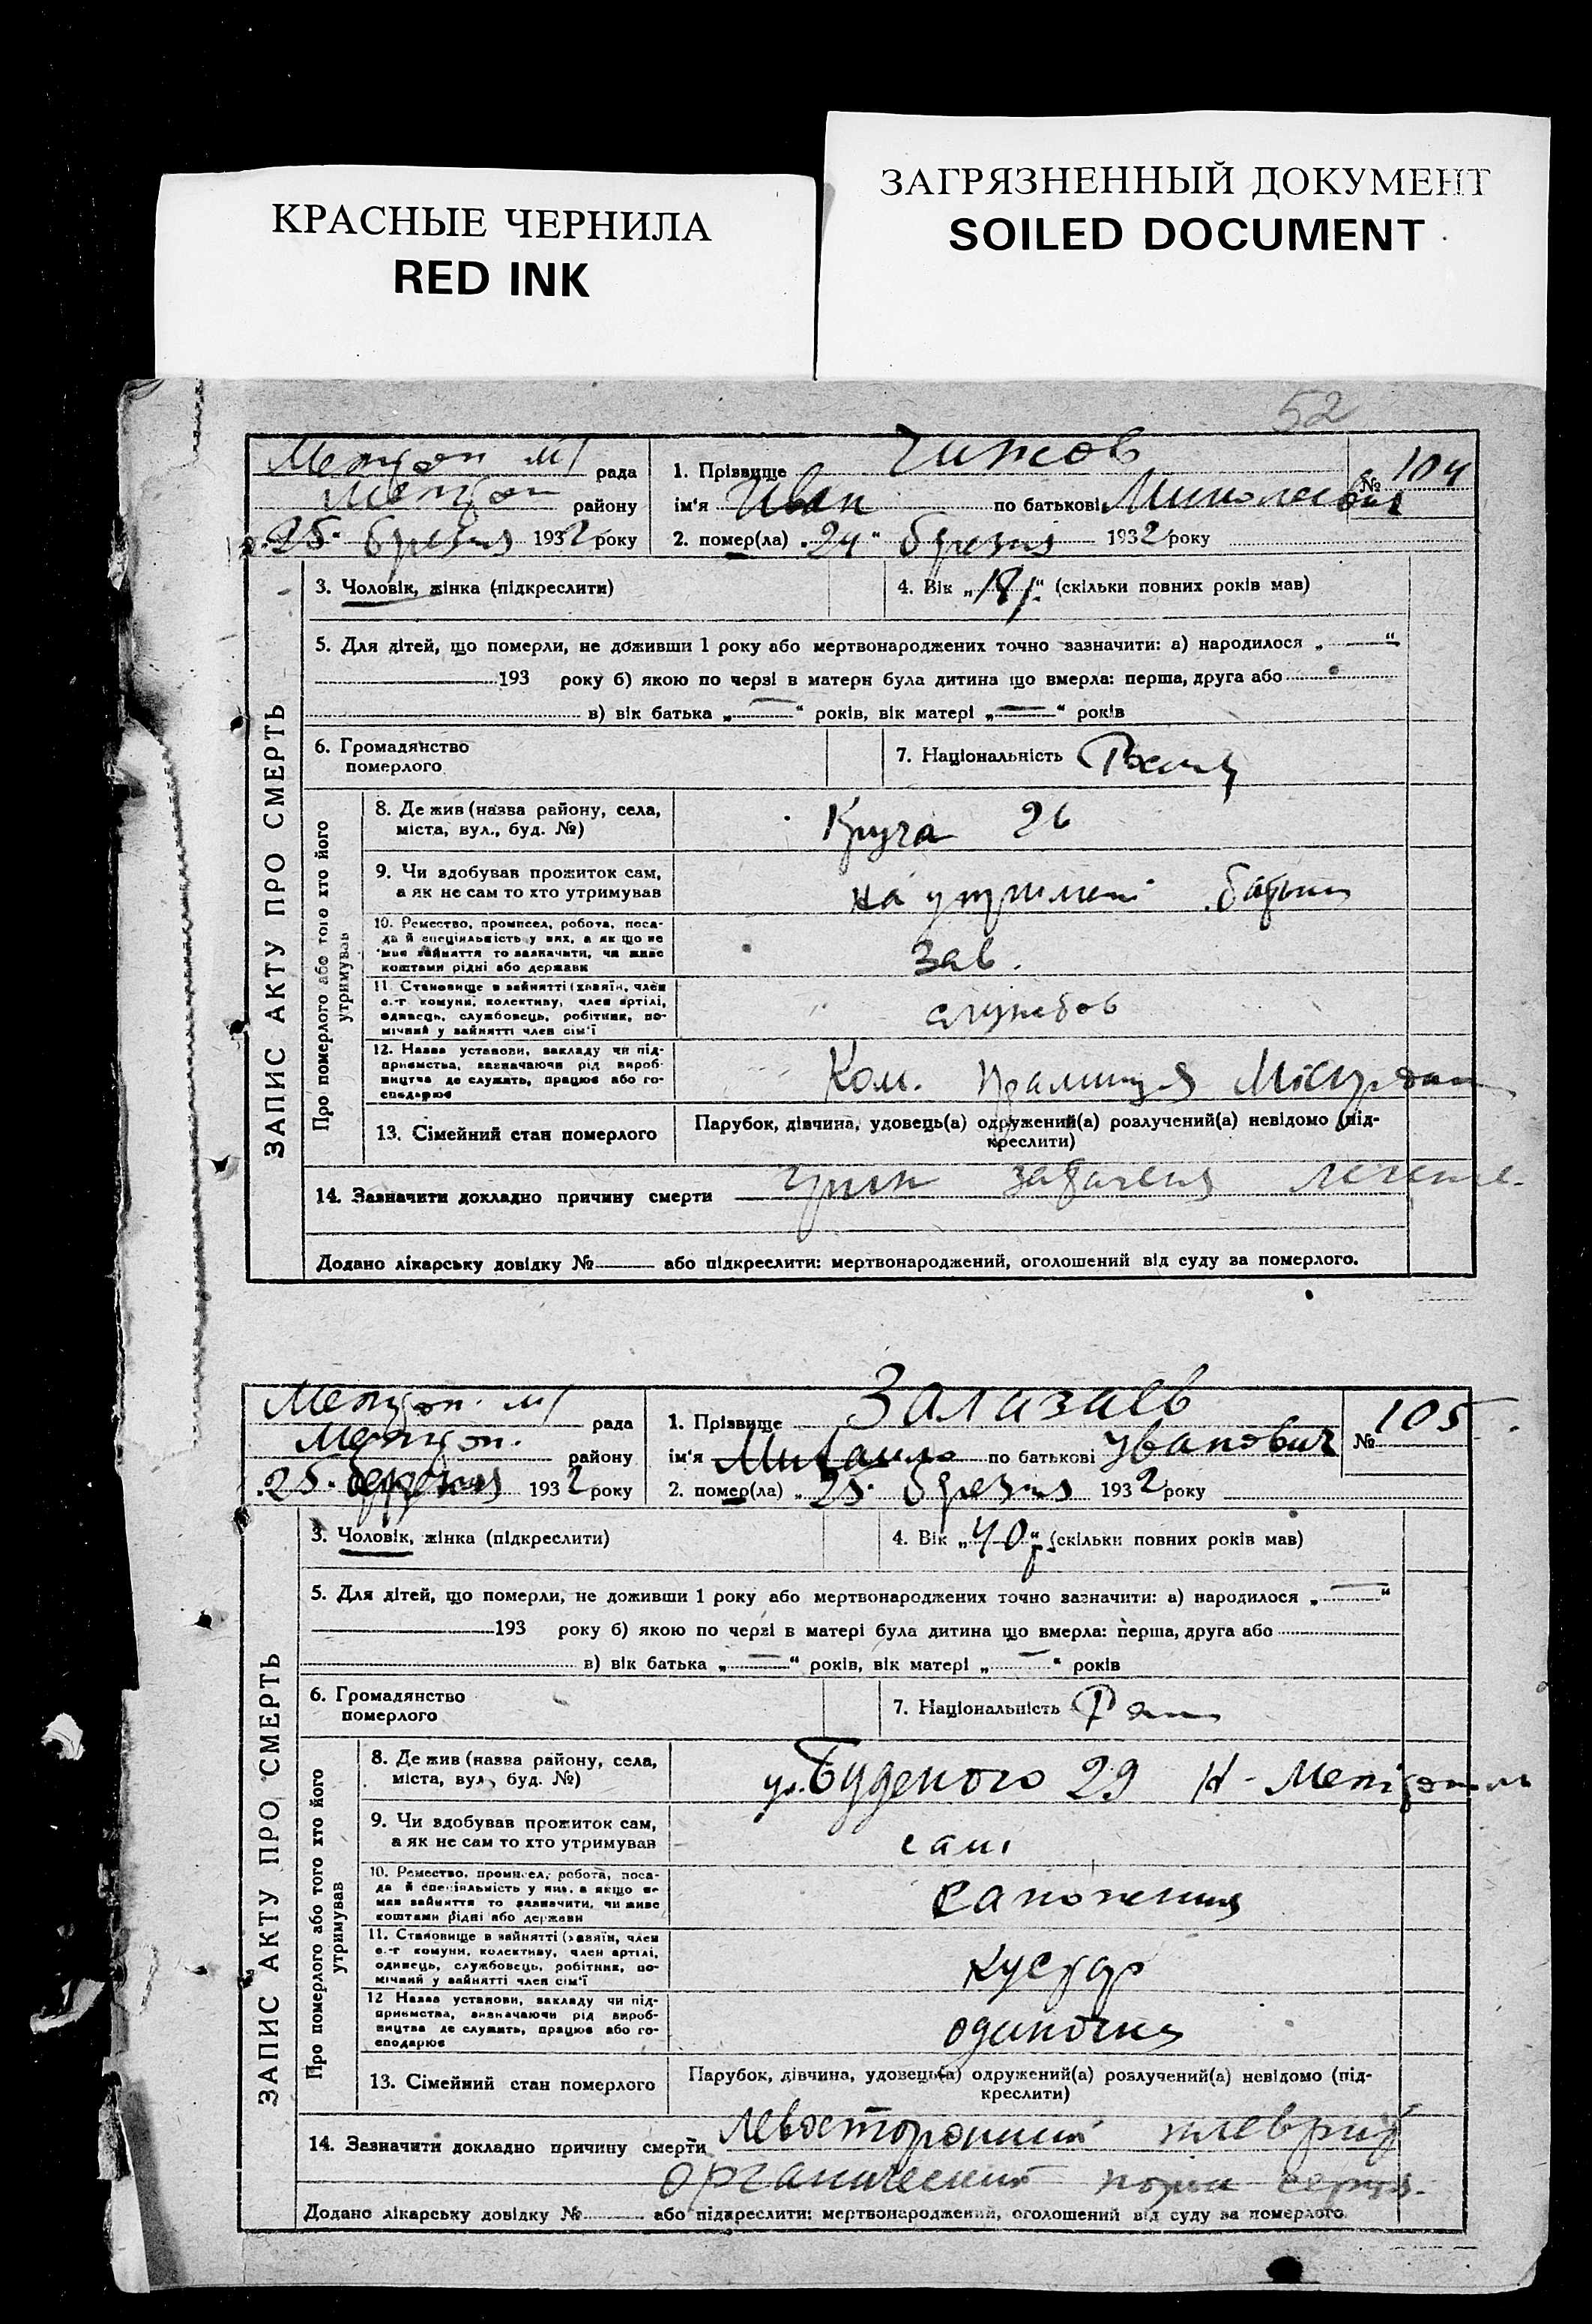 КРАСНЫЕ ЧЕРНИЛА
RED INK
ЗАГРЯЗНЕННЫЙ ДОКУМЕНТ
SOILED DOCUMENT
52
ЗАПИС АКТУ ПРО СМЕРТЬ
рада
району
25 березня 1932 року
1. Прізвище Чижов
№ 104
ім'я Иван по батькові
2. помер(ла) „24" березня 1932 року
3. Чоловік, жінка (підкреслити)
4. Вік „18 р." (скільки повних років мав)
5. Для дітей, що померли, не доживши 1 року або мертвонароджених точно зазначити: а) народилося „ “
193 року б) якою по черзі в матери була дитина що вмерла: перша, друга або
в) вік батька „—“ років, вік матері „—“ років
6. Громадянство
померлого
7. Національність
Про померлого або того хто його
утримував
8. Де жив (назва району, села,
міста, вул., буд. №)
Круча 26
9. Чи здобував прожиток сам,
а як не сам то хто утримував
на батьки
10. Ремество, промисел, робота, поса-
да й спеціяльність у них, а як що не
мав зайняття то зазначити, чи живе
коштами рідні або держави
Зав.
11. Становище в зайнятті (хазяїн, член
с.-г комуни, колективу, член артілі,
одинець, службовець, робітник, по-
мічний у зайнятті член сім'ї
службов
12. Назва установи, закладу чи під-
приємства, зазначаючи рід вироб-
ництва де служить, працює або го-
сподарює
Ком.
13. Сімейний стан померлого
Парубок, дівчина, удовець(а) одружений(а) розлучений(а) невідомо (під-
креслити)
14. Зазначити докладно причину смерти
Додано лікарську довідку № або підкреслити: мертвонароджений, оголошений від суду за померлого.
ЗАПИС АКТУ ПРО СМЕРТЬ
рада
району
25 березня 1932 року
1. Прізвище Залазаев
№ 105
ім'я Михайло по батькові Іванович
2. помер(ла) „25" березня 1932 року
3. Чоловік, жінка (підкреслити)
4. Вік „40 р." (скільки повних років мав)
5. Для дітей, що померли, не доживши 1 року або мертвонароджених точно зазначити: а) народилося „—“
193 року б) якою по черзі в матері була дитина що вмерла: перша, друга або
в) вік батька „—“ років, вік матері „—“ років
6. Громадянство
померлого
7. Національність
Про померлого або того хто його
утримував
8. Де жив (назва району, села,
міста, вул, буд. №)
ул. Буденого 29 Н-
9. Чи здобував прожиток сам,
а як не сам то хто утримував
сам
10. Ремество, промисел, робота, поса-
да й спеціяльність у них, а якщо не
мав зайняття то зазначити, чи живе
коштами рідні або держави
11. Становище в зайнятті (хазяїн, член
с.-г комуни, колективу, член артілі,
одинець, службовець, робітник, по-
мічний у зайнятті член сім'ї
кустар
12 Назва установи, закладу чи під-
приємства, зазначаючи рід вироб-
ництва де служить, працює або го-
сподарює
одиночка
13. Сімейний стан померлого
Парубок, дівчина, удовець(а) одружений(а) розлучений(а) невідомо (під-
креслити)
14. Зазначити докладно причину смерти Левосторонний плеврит
органический порок сердца
Додано лікарську довідку № або підкреслити: мертвонароджений, оголошений від суду за померлого.